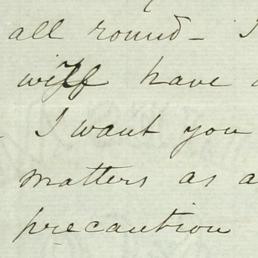 all round - I
will have
I want you
matters as a
precaution